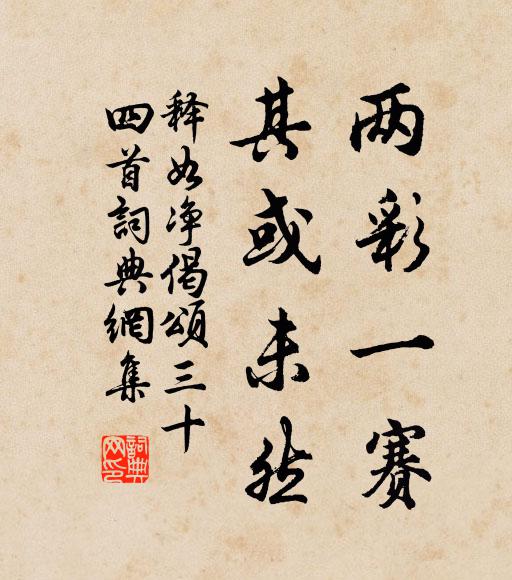 两彩一赛
其或未然
释如净偈颂三十
四首詞典網集
詞典网印